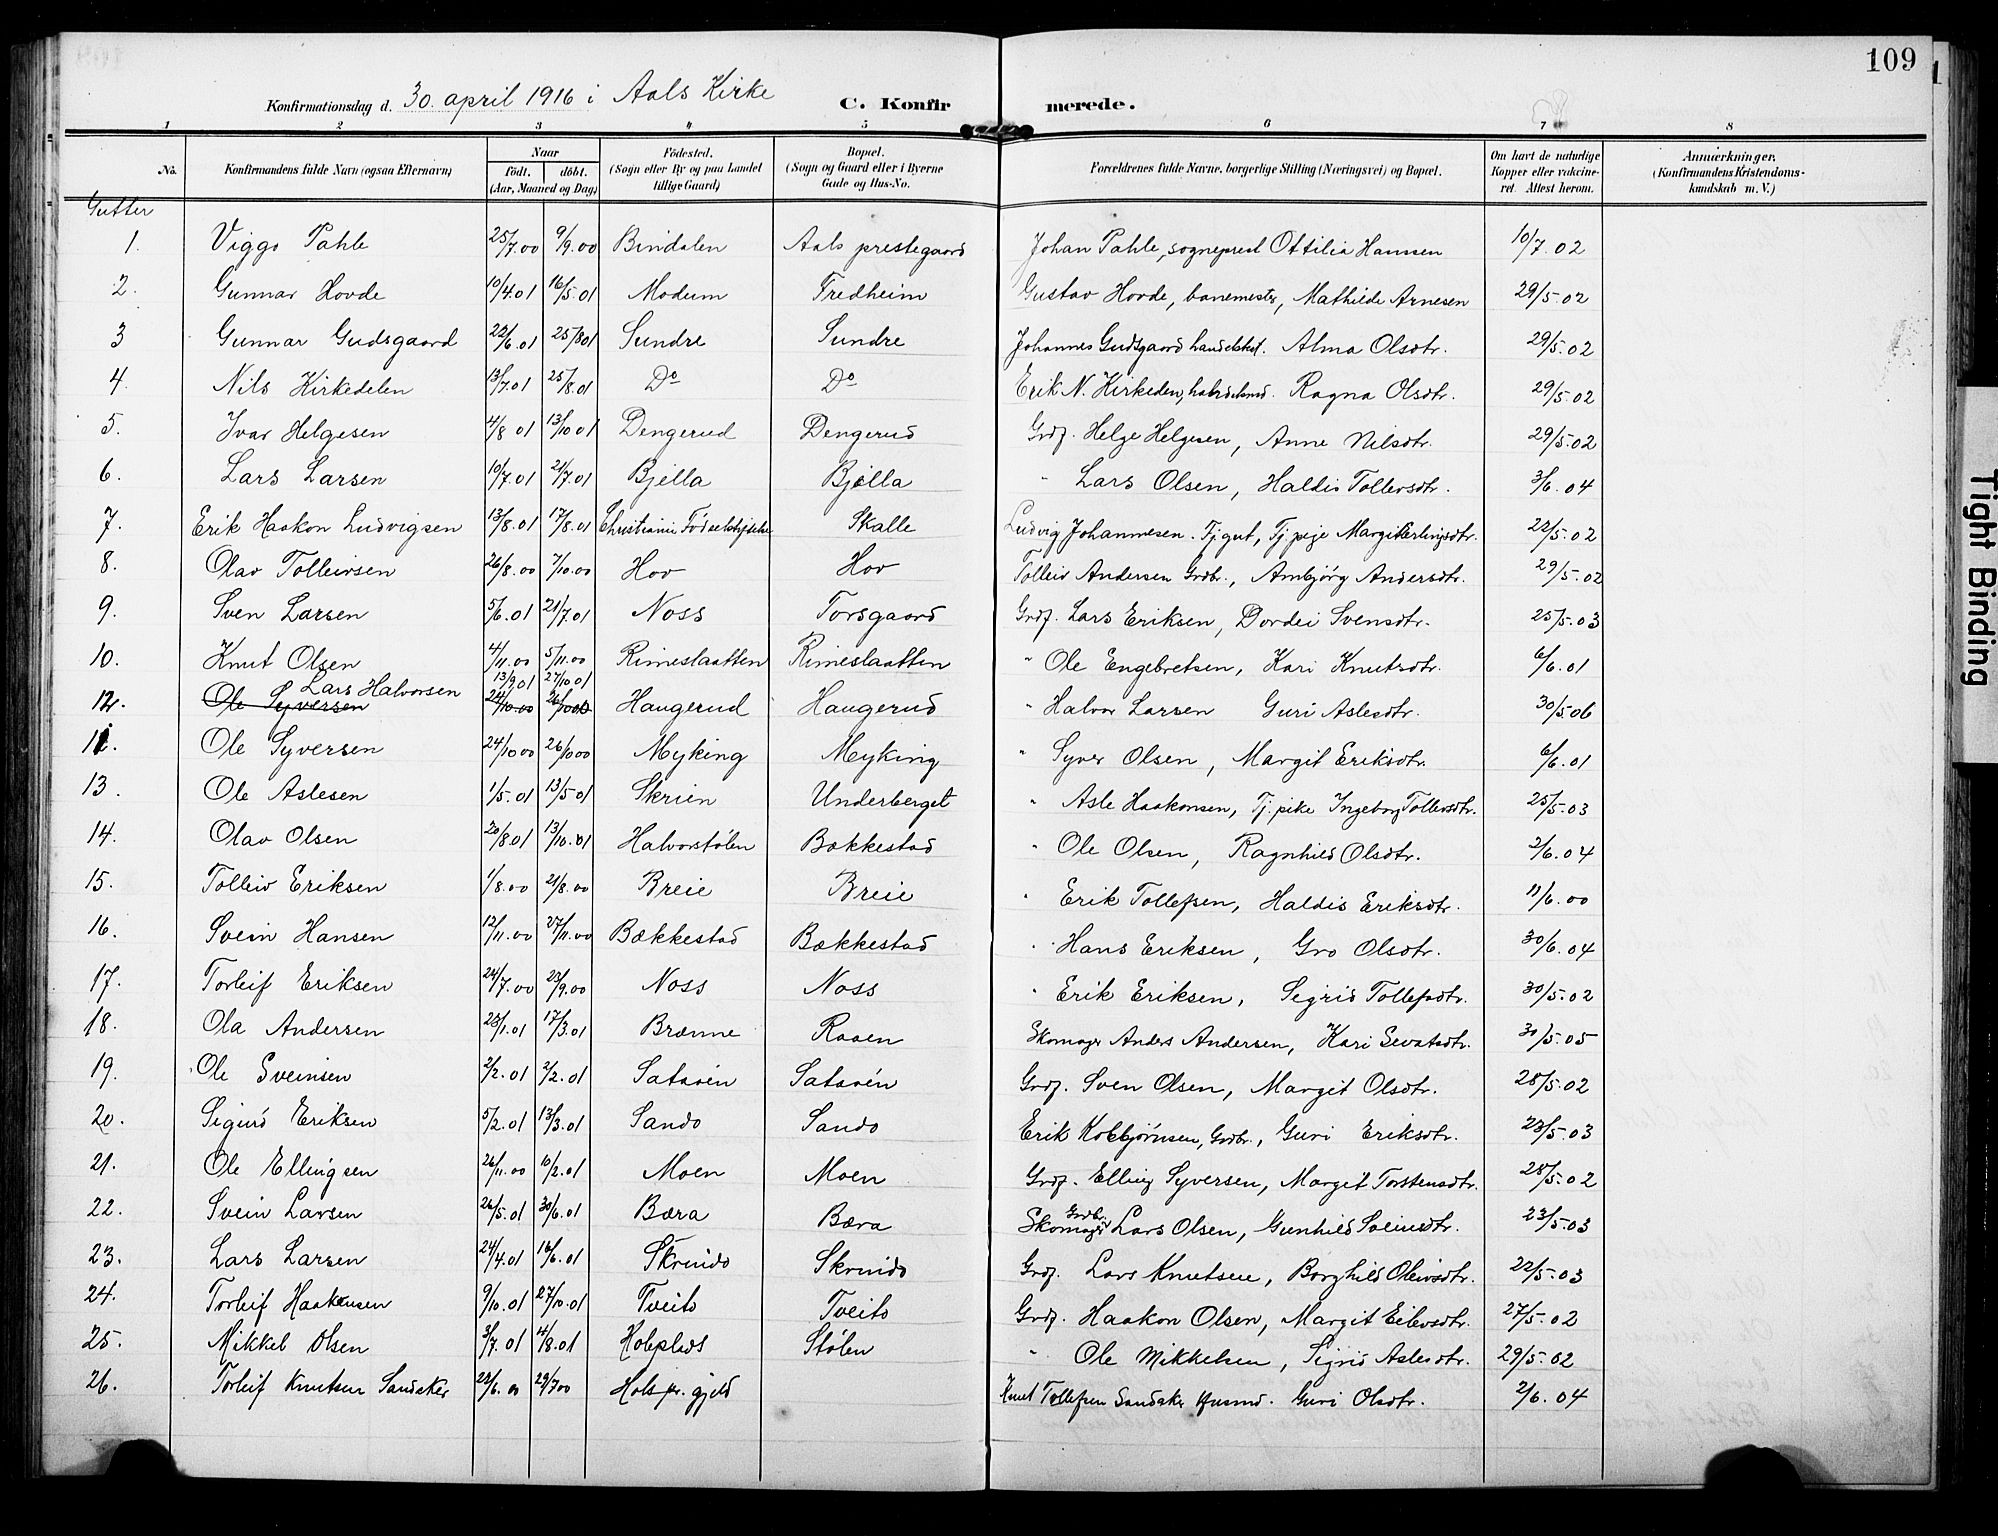 109
Konfirmationsdag d. 30. april 1916 i Aals Kirke C. Konfirmerede.
1 2 3 4 5 6 7 8
No. Konfirmandens fulde Navn (ogsaa Efternavn) Naar født. døbt. (Aar, Maaned og Dag) Fødested. (Sogn eller By og paa Landet tillige Gaard) Bopæl. (Sogn og Gaard eller i Byerne Gade og Hus-No. Forældrenes fulde Navne, borgerlige Stilling (Næringsvei) og Bopæl. Om havt de naturlige Kopper eller vakcineret. Attest herom. Anmærkninger. (Konfirmandens Kristendomskundskab m. V.)
Gutter
1. Viggo Pahle 25/7.00 9/9.00 Bindalen Aals prestegaard Johan Pahle, sogneprest Ottilia Hansen 10/7.02
2. Gunnar Hovde 10/4.01 16/5.01 Modum Fredheim Gustav Hovde, banemester, Mathilde Arnesen 29/5.02
3 Gunnar Gudsgaard 22/6.01 25/8 01 Sundre Sundre Johannes Gudsgaard handelsbet. Alma Olsdtr. 29/5.02
4. Nils Kirkedelen 13/7.01 25/8.01 Do Do Erik N. Kirkeden, Ragna Olsdtr. 29/5.02
5. Ivar Helgesen 4/8 01 13/10 01 Dengerud Dengerud Grdf. Helge Helgesen, Anne Nilsdtr. 29/5.02
6. Lars Larsen 10/7.01 21/7.01 Bjella Bjella " Lars Olsen, Haldis Tollevsdtr. 3/6.04
7. Erik Haakon Ludvigsen 13/8.01 17/8.01 Christiania Skalle Ludvig Johannesen. Tj.gut, Tj.pige Margit Erlingsdtr. 22/5.02
8. Olav Tolleivsen 26/8.00 7/10.00 Hov Hov Tolleiv Andersen Grdbr., Ambjørg Andersdtr. 29/5.02
9. Sven Larsen 5/6.01 21/7.01 Noss Torsgaard Grdf. Lars Eriksen, Dordei Svensdtr. 25/5.03
10. Knut Olsen 4/11.00 5/11.00 Rimeslaatten Rimeslaatten " Ole Engebretsen, Kari Knutsdtr. 6/6.01
12. Ole Syversen Lars Halvorsen 13/9 01 27/10 01 24/10.00 26/10 00 Haugerud Haugerud " Halvor Larsen Guri Aslesdtr. 30/5.06
11. Ole Syversen 24/10 00 26/10 00 Myking Myking " Syver Olsen, Margit Eriksdtr. 6/6.01
13. Ole Aslesen 1/5.01 13/5 01 Skrien Underberget " Asle Haakonsen, Tj.pike Ingeborg Tollevsdtr. 25/5.03
14. Olav Olsen 20/8.01 13/10.01 Halvorstølen Bækkestad " Ole Olsen, Ragnhild Olsdtr. 2/6.04
15. Tolleiv Eriksen 1/8.00 21/8.00 Breie Breie " Erik Tollefsen, Haldis Eriksdtr. 11/6.00
16. Svein Hansen 12/11.00 27/11.00 Bækkestad Bækkestad " Hans Eriksen, Gro Olsdtr. 30/6.04
17. Torleif Eriksen 24/7.00 23/9.00 Noss Noss " Erik Eriksen, Sigrid Tollefsdtr. 30/5.02
18. Ola Andersen 23/1.01 17/3.01 Brænne Raaen Skomager Anders Andersen, Kari Sevatsdtr. 30/5.05
19. Ole Sveinsen 2/2.01 2/2.01 Sataøen Sataøen Grdf. Sven Olsen, Margit Olsdtr. 28/5.02
20. Sigurd Eriksen 5/2.01 13/3.01 Sando Sando Erik Kolbjørnsen, Grdbr., Guri Eriksdtr. 23/5.03
21. Ole Ellingsen 26/11.00 10/2.01 Moen Moen Grdf. Elling Syversen, Margit Torstensdtr. 28/5.02
22. Svein Larsen 26/5.01 30/6.01 Bæra Bæra Skomager Grdbr. Lars Olsen, Gunhild Sveinsdtr. 23/5.03
23. Lars Larsen 24/4.01 16/6.01 Skrindo Skrindo Grdf. Lars Knutsen, Borghild Oleivsdtr. 22/5.03
24. Torleif Haakonsen 9/10.01 27/10.01 Tveito Tveito Grdf. Haakon Olsen, Margit Eilevsdtr. 27/5.02
25. Mikkel Olsen 3/7.01 4/8.01 Holeplads Stølen " Ole Mikkelsen, Sigrid Aslesdtr. 29/5.02
26. Torleif Knutsen Sandaker Hols pr.gjeld Knut Tollefsen Sandaker Husmd. Guri Olsdtr. 2/6.04
Tight Binding